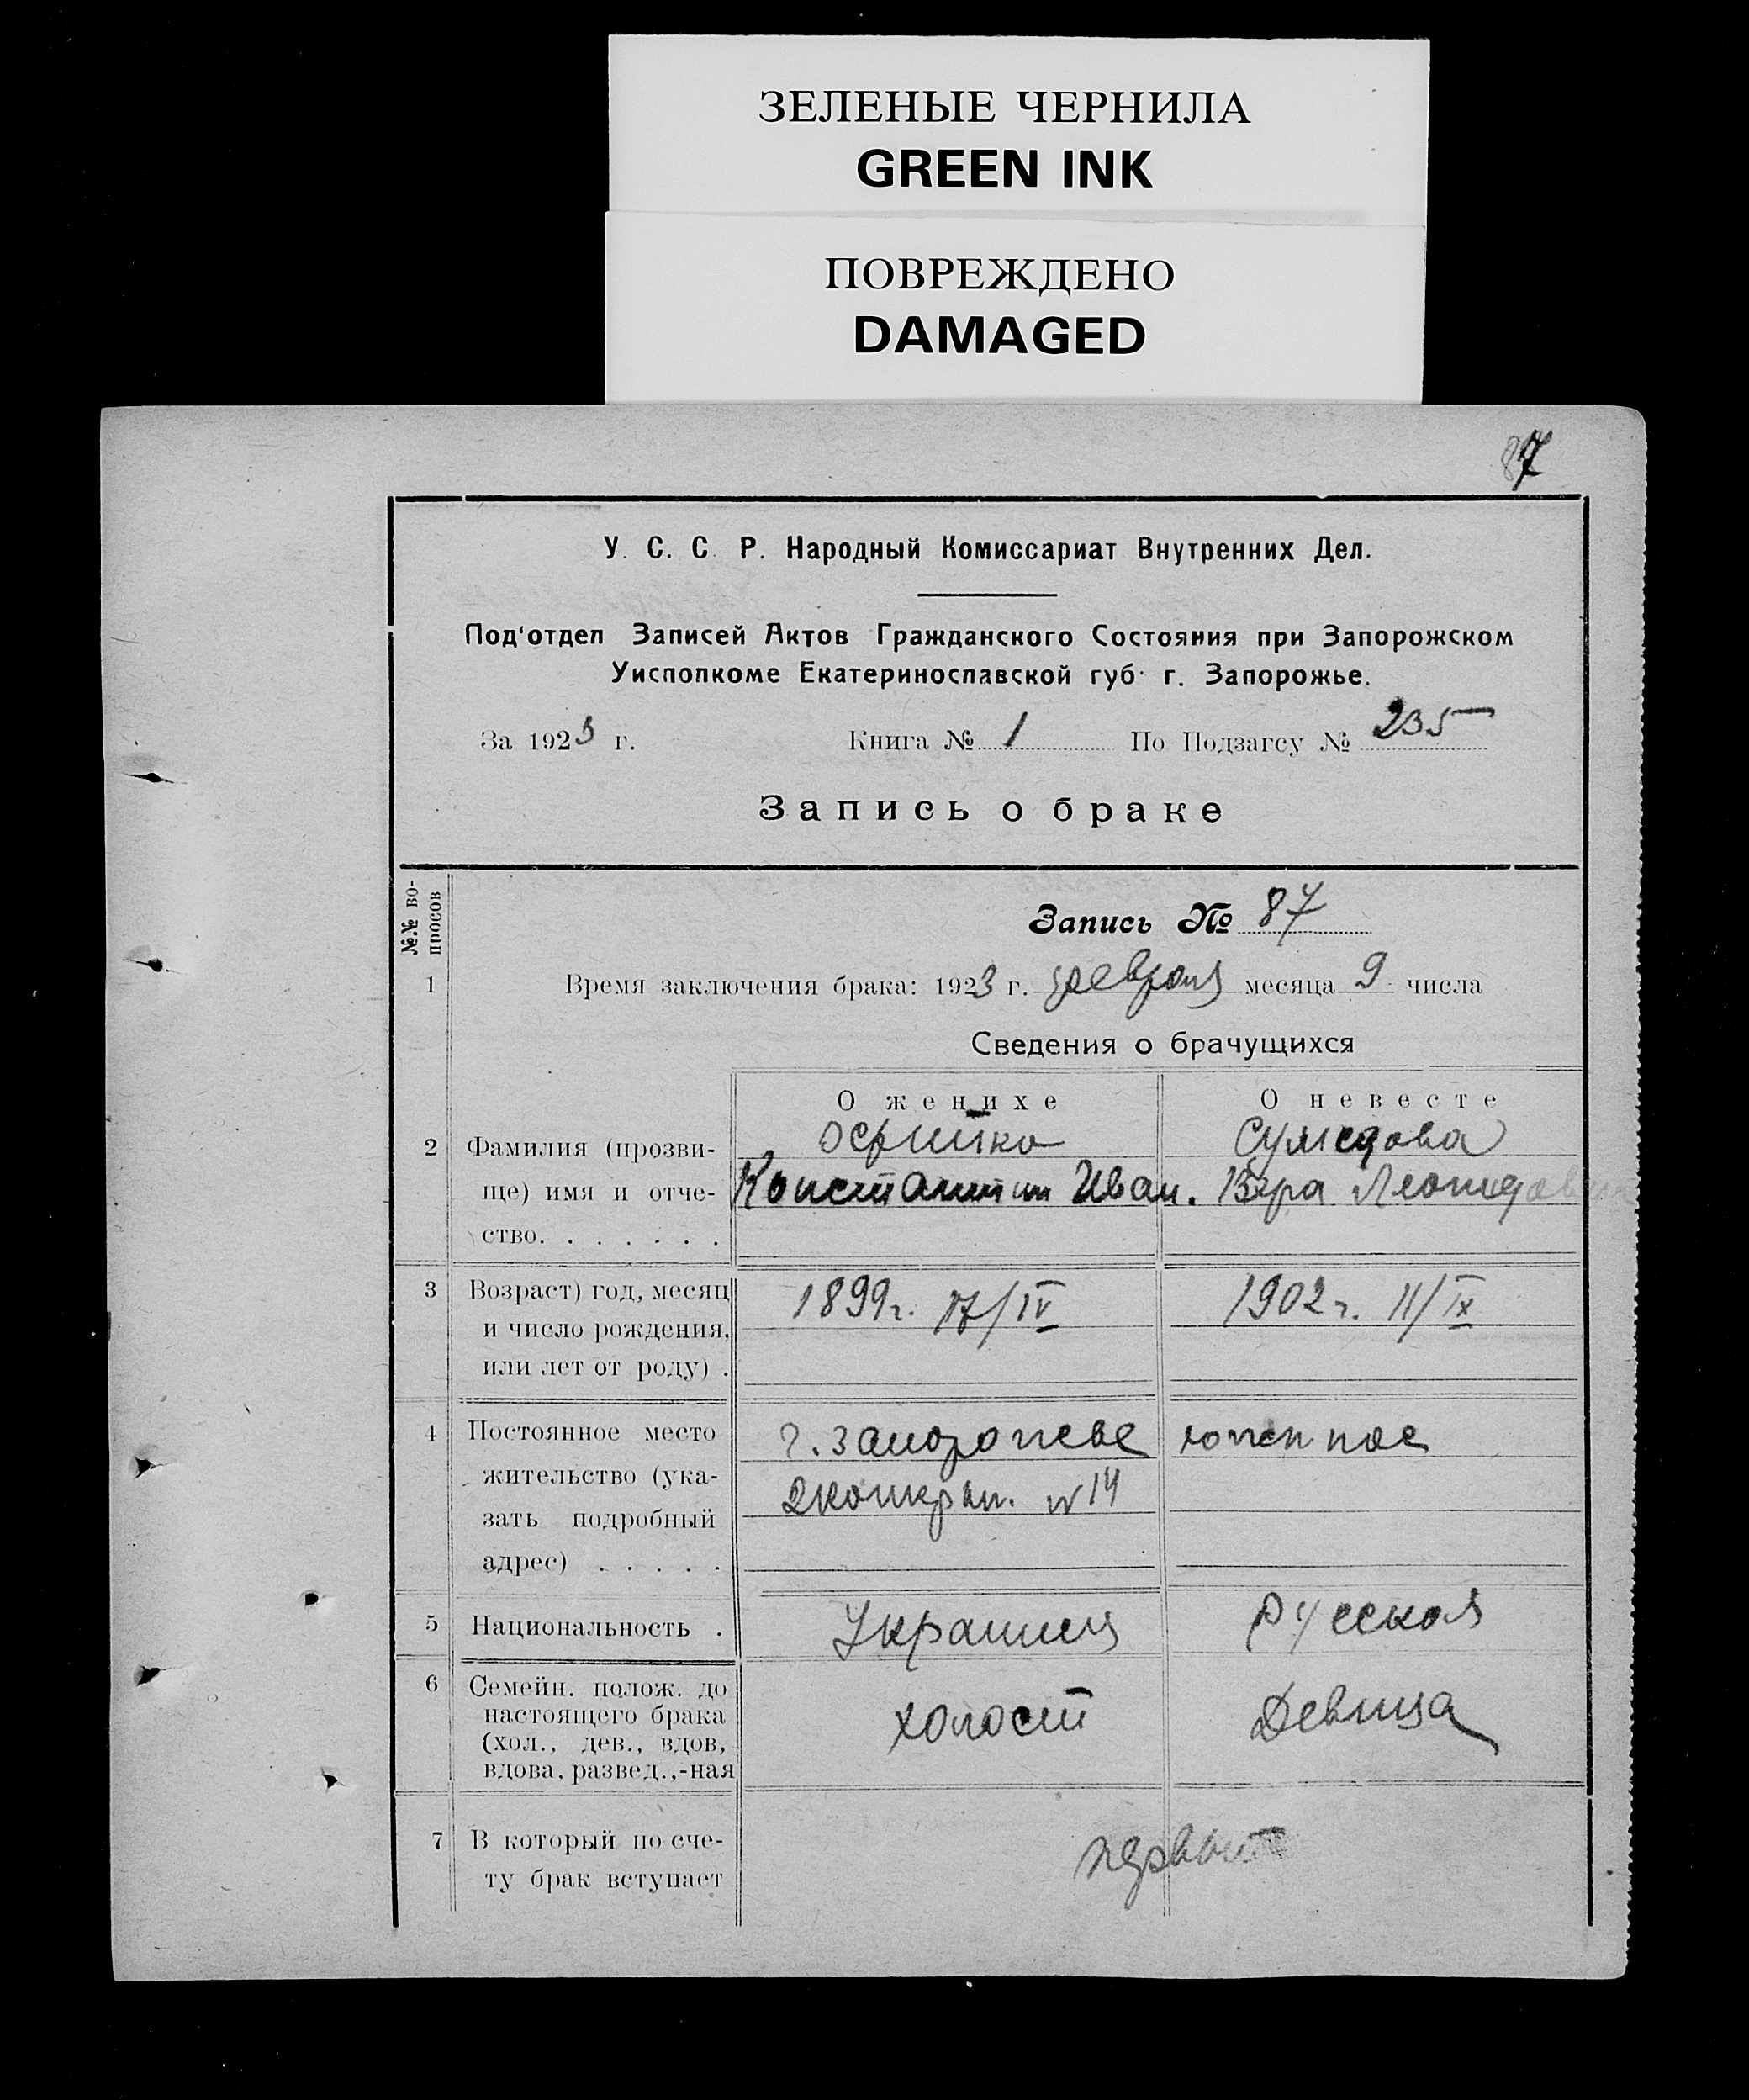 ЗЕЛЕНЫЕ ЧЕРНИЛА
GREEN INK
ПОВРЕЖДЕНО
DAMAGED
87
У. С. С. Р. Народный Комиссариат Внутренних Дел.
Под'отдел Записей Актов Гражданского Состояния при Запорожском
Уисполкоме Екатеринославской губ. г. Запорожье.
За 1923 г. Книга № 1 По Подзагсу № 235
Запись о браке
№.№ вопросов
Запись № 87
1 Время заключения брака: 1923 г. февраля месяца 9 числа
Сведения о брачущихся
О женихе О невесте
2 Фамилия (прозви-
ще) имя и отче- Константин Иван. Вера
ство. . . . . . .
3 Возраст) год, месяц 1899г. 17/IV 1902г. 11/IX
и число рождения,
или лет от роду) .
4 Постоянное место г. Запорожье
жительство (ука- №14
зать подробный
адрес) . . . . .
5 Национальность . Украинец Русская
6 Семейн. полож. до
настоящего брака холост Девица
(хол., дев., вдов,
вдова, развед.,-ная
7 В который по сче- первый
ту брак вступает